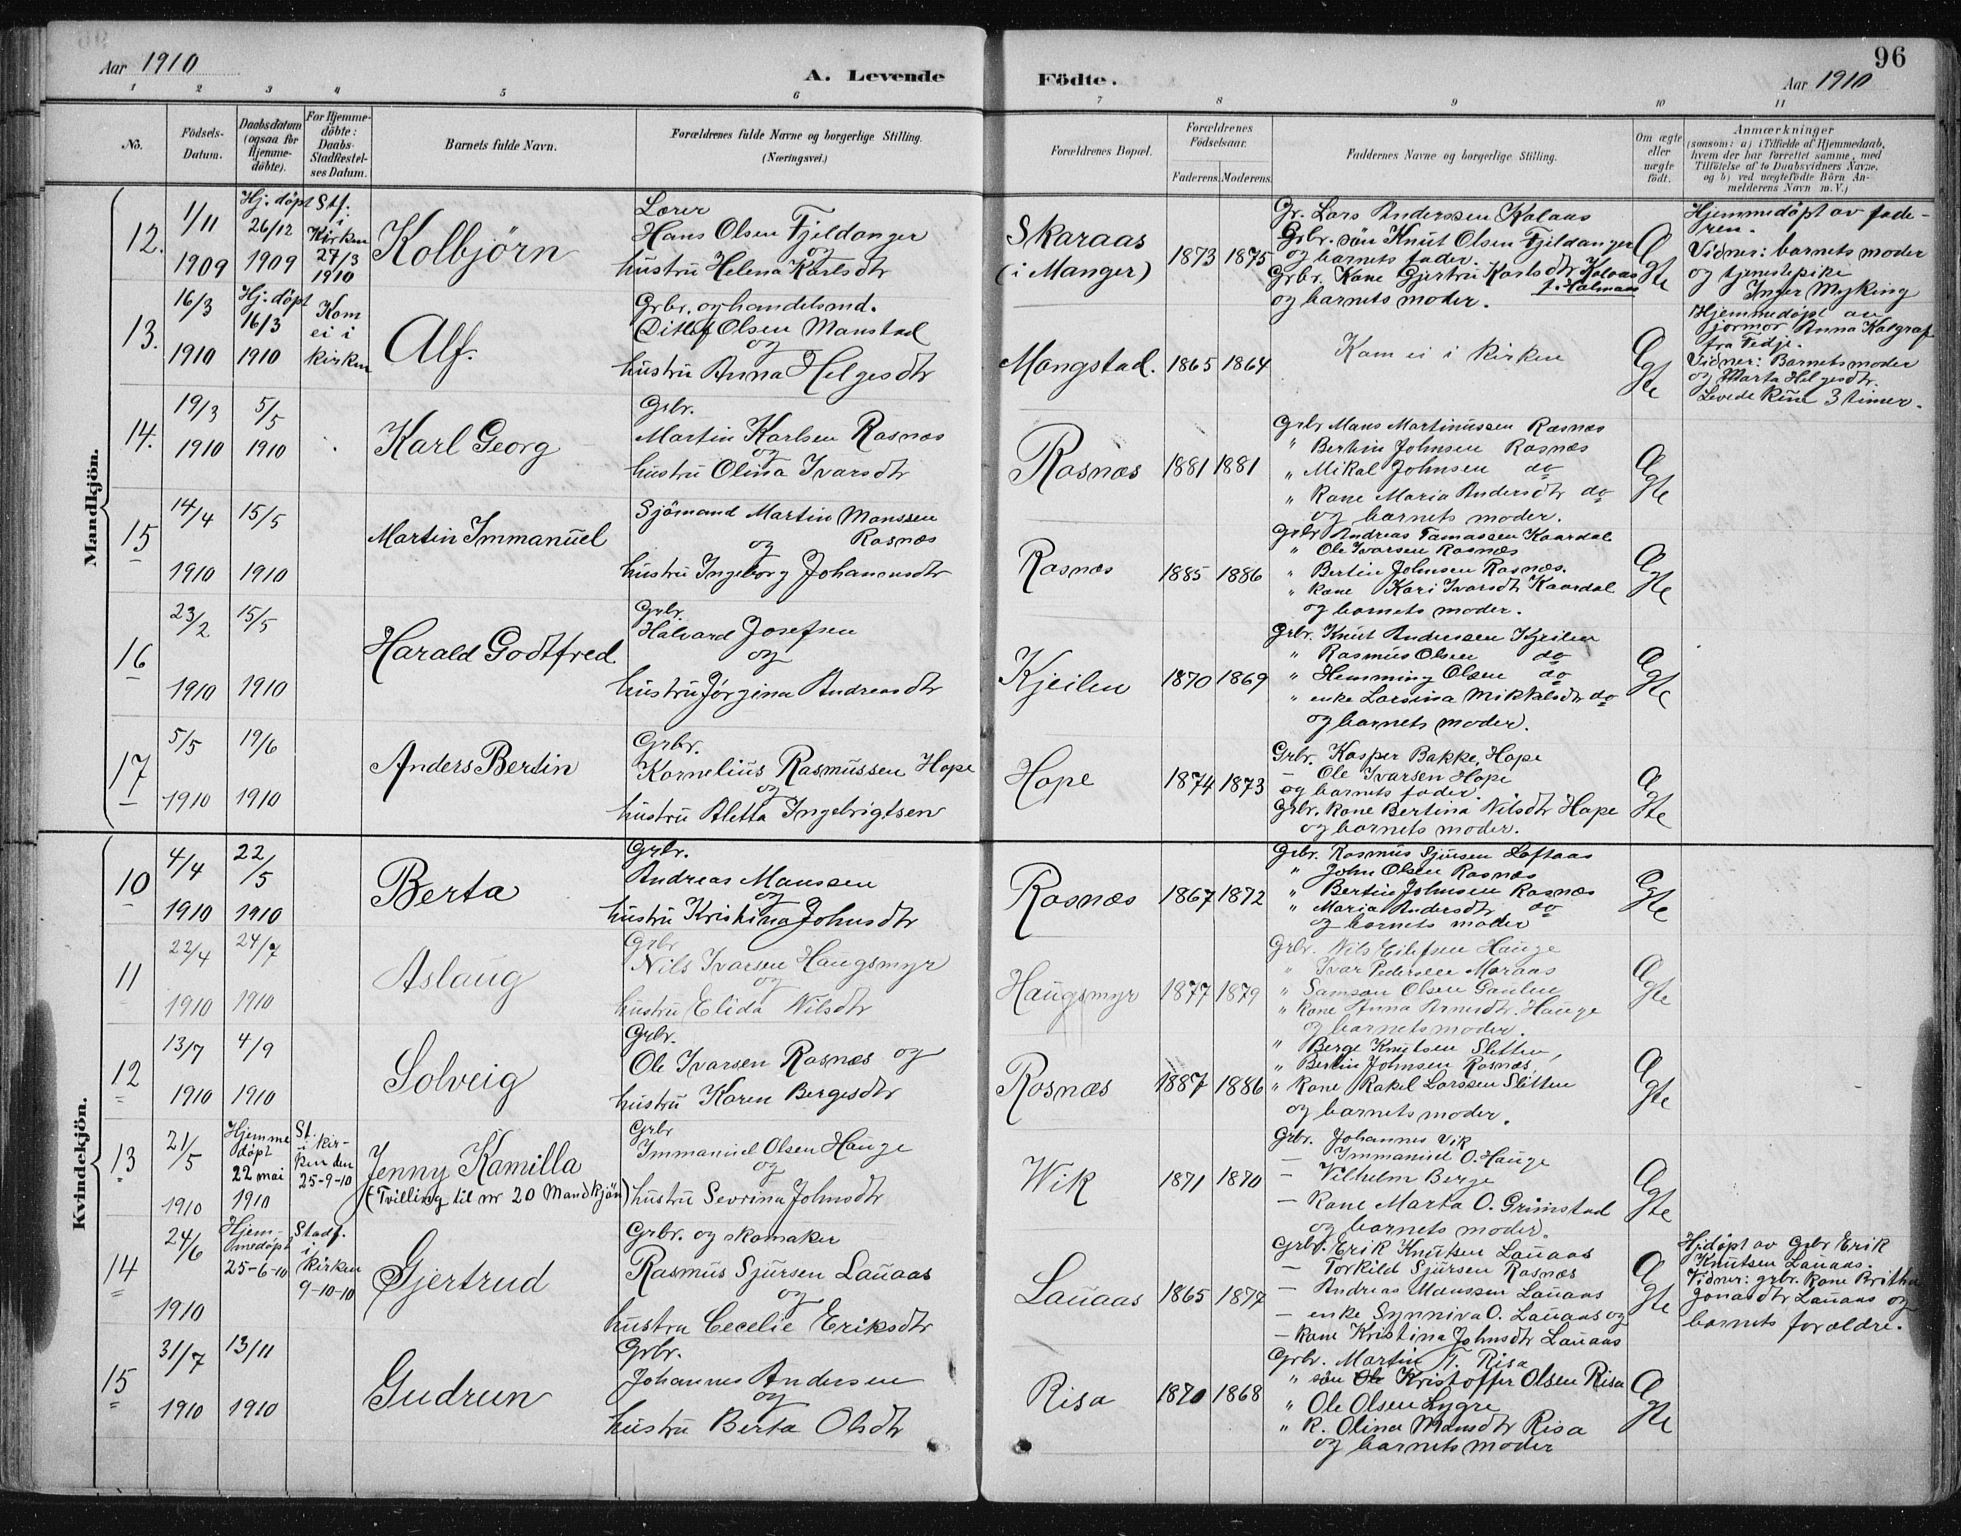 96
Aar 1910
A. Levende
Födte.
Aar 1910
1 2 3 4 5 6 7 8 9 10 11
No.
Födsels-
Datum.
Daabsdatum
(ogsaa för
Hjemme-
döbte).
For Hjemme-
döbte:
Daabs-
Stadfæstel-
ses Datum.
Barnets fulde Navn.
Forældrenes fulde Navne og borgerlige Stilling.
(Næringsvei.)
Forældrenes Bopæl.
Forældrenes
Födselsaar.
Faderens. Moderens.
Faddernes Navne og borgerlige Stilling.
Om ægte
eller
uægte
födt.
Anmærkninger
(saasom: a) i Tilfælde af Hjemmedaab,
hvem der har forrettet samme, med
Tilföielse af to Daabsvidners Navne,
og b) ved uægtefödte Börn An-
melderens Navn m. V.)
Mandkjön.
12.
1/11
1909
Hj. döpt
26/12
1909
Stf.
i
Kirken
27/3
1910
Kolbjörn
Lærer
Hans Olsen Fjeldanger
og
hustru Helena Karlsdtr
Skaraas
(i Manger)
1873 1875
Gr. Lars Anderssen Kolaas
Grbr. sön Knut Olsen Fjeldanger
og barnets fader.
Grbr. Kone Gjertru Karlsdtr Kolaas
f. Halmaas
og barnets moder.
Ægte
Hjemmedöpt av fade-
ren.
Vidner: barnets moder
og tjenestepike
Inger Myking
13.
16/3
1910
Hj. döpt
16/3
1910
Kom
ei i
kirken
Alf.
Grbr. og handelsmd.
Ditlef Olsen Monstad
og
hustru Anna Helgesdtr
Mongstad.
1865 1864
Kom ei i kirken
Ægte
Hjemmedöpt av
jormor Anna
fra Fedje.
Vidner: Barnets moder
og Marta Helgesdtr.
Levede kun 3 timer.
14.
19/3
1910
5/5
1910
Karl Georg
Grbr.
Martin Karlsen Rosnæs
og
hustru Olina Ivarsdtr
Rosnæs
1881 1881
Grbr Mons Martinussen Rosnæs
" Bertin Johnsen Rosnæs
" Mikal Johnsen do
" Kone Maria Andersdtr do
og barnets moder.
Ægte
15
14/4
1910
15/5
1910
Martin Immanuel
Sjömand Martin Monssen
og Rosnæs
hustru Ingeborg Johannesdtr
Rosnæs
1885 1886
Grbr Andreas Tomassen Kaardal
" Ole Ivarsen Rosnæs
" Bertin Johnsen Rosnæs.
" kone Kari Ivarsdtr Kaardal
og barnets moder.
Ægte
16
23/2
1910
15/5
1910
Harald Godtfred
Grbr.
Halvard Josefsen
og
hustru Jörgina Andreasdtr
Kjeilen
1870 1869
Grbr. Knut Anderssen Kjeilen
" Rasmus Olsen do
" Hemming Olsen do
" enke Larsina Mikkelsdtr do
og barnets moder.
Ægte
17
5/5
1910
19/6
1910
Anders Bertin
Grbr.
Kornelius Rasmussen Hope
og
hustru Aletta Ingebrigtsen
Hope
1874 1873
Grbr. Kasper Bakke, Hope
— Ole Ivarsen Hope
og barnets fader.
Grbr. kone Bertina Nilsdtr Hope
og barnets moder.
Ægte
Kvindekjön.
10
4/4
1910
22/5
1910
Berta
Grbr.
Andreas Monssen
og
hustru Kristina Johnsdtr
Rosnæs
1867 1872
Grbr. Rasmus Sjursen Loftaas
" John Olsen Rosnæs
" Bertin Johnsen Rosnæs
" Maria Andersdtr do
og barnets moder
Ægte
11
22/4
1910
24/7
1910
Aslaug
Grbr
Nils Ivarsen Haugsmyr
og
hustru Elida Nilsdtr
Haugsmyr
1877 1879
Grbr. Nils Eilefsen Hauge
" Ivar Pedersen Moraas
" Samson Olsen Gaulen
" kone Anna Arnesdtr. Hauge
og barnets moder.
Ægte
12
13/7
1910
4/9
1910
Solveig
Grbr.
Ole Ivarsen Rosnæs og
hustru Karen Bergesdtr
Rosnæs
1887 1886
" Berge Knutsen Sletten,
" Bertin Johnsen Rosnæs,
" kone Rakel Larssen Sletten
og barnets moder.
Ægte
13
21/5
1910
Hjemme
döpt
22 mai
1910
St.
i kir-
ken den
25-9-10
Jenny Kamilla
(Tvilling til nr 20 Mandkjön)
Grbr
Immanuel Olsen Hauge
og
hustru Sevrina Johnsdtr
Wik
1871 1870
Grbr. Johannes Vik
— Immanuel O. Hauge
— Vilhelm Berge
— Kone Marta O. Grimstad
og barnets moder.
Ægte
14
24/6
1910
Hjem-
medöpt
25-6-10
Stadf.
i
Kirken
9-10-10
Gjertrud
Grbr. og skomaker
Rasmus Sjursen Lauaas
og
hustru Cecelie Eriksdtr
Lauaas
1865 1877
Grbr. Erik Knutsen Lauaas
— Torkild Sjursen Rosnæs
— Andreas Monssen Lauaas
— enke Synniva O. Lauaas og
— kone Kristina Johnsdtr Lauaas
Ægte
Hjdöpt av Grbr Erik
Knutsen Lauaas.
Vidner: grbr. kone Britha
Jonasdtr Lauaas og
barnets forældre.
15
31/7
1910
13/11
1910
Gudrun
Grbr.
Johannes Andersen
og
hustru Berta Olsdtr
Risa
1870 1868
Grbr. Martin T. Risa
" sön Kristoffer Olsen Risa
" Ole Olsen Lygre
" K. Olina Monsdtr Risa
og barnets moder
Ægte